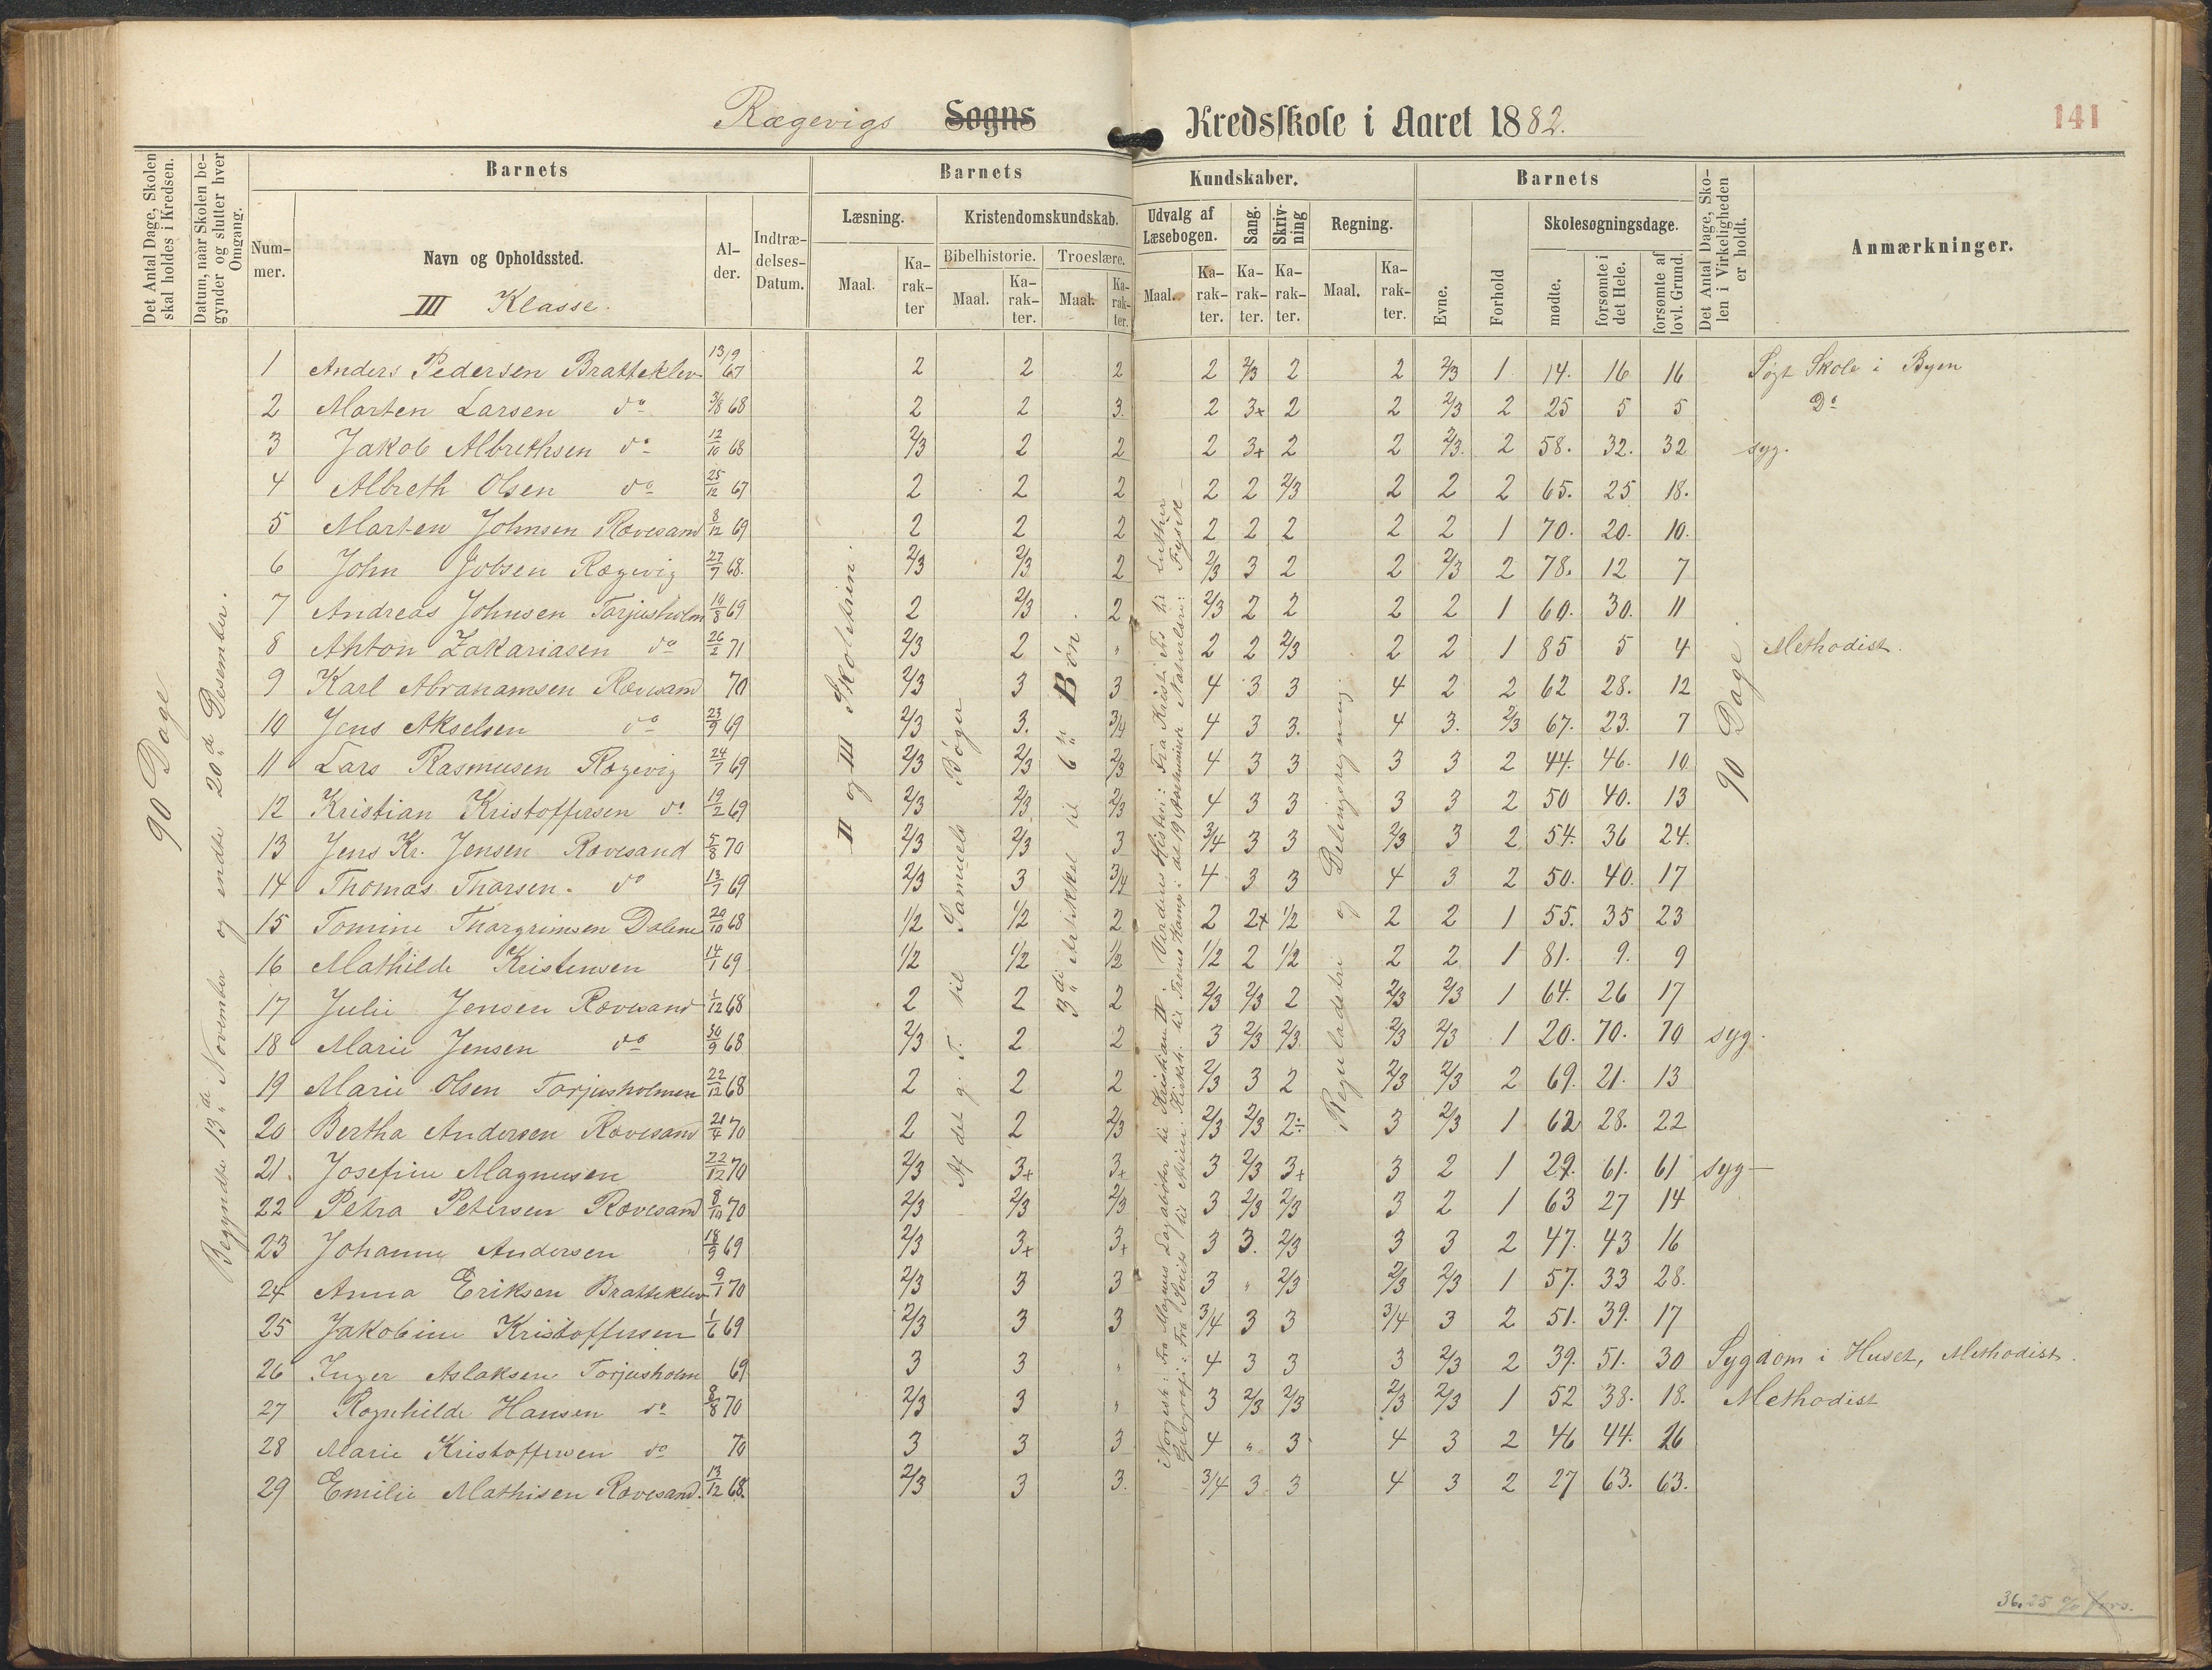 Rægevigs Sogns Kredsskole i Aaret 1882.
141
Det Antal Dage, Skolen skal holdes i Kredsen.
Datum, naar Skolen begynder og slutter hver Omgang.
Barnets
Barnets Kundskaber.
Barnets
Det Antal Dage, Skolen i Virkeligheden er holdt.
Anmærkninger.
Nummer.
Navn og Opholdssted.
III Klasse.
Alder.
Indtrædelses-Datum.
Læsning.
Kristendomskundskab.
Udvalg af Læsebogen.
Sang.
Skrivning
Regning.
Evne.
Forhold
Skolesøgningsdage.
Bibelhistorie.
Troeslære.
Maal. Karakter
Maal. Karakter.
Maal. Karakter.
Maal. Karakter. Karakter. Karakter.
Maal. Karakter.
mødte.
forsømte i det Hele.
forsømte af lovl. Grund.
90 Dage
Begyndte 13de November og endte 20de Desember.
II og III Skoletrin.
Af det g. T. til Samuels Bøger
3die Artikkel til 6te Bøn.
Reguladetri og Delingsregning.
90 Dage
1 Anders Pedersen Bratteklev 13/9 67 2 2 2 2 2/3 2 2 2/3 1 14. 16 16 Søgt Skole i Byen
2 Marten Larsen do 3/8 68 2 2 3. 2 3+ 2 2 2/3 2 25 5 5 Do
3 Jakob Albrethsen do 12/10 68 2/3 2 2 2 3+ 2 2 2/3. 2 58. 32. 32 syg.
4 Albreth Olsen do 25/12 67 2 2 2 2 2 2/3 2 2 2 65. 25 18.
5 Marten Johnsen Rævesand 8/12 69 2 2 2 2 2 2 2 2 1 70. 20. 10.
6 John Jobsen Rægevig 27/7 68. 2/3 2/3 2 2/3 3 2 2 2/3 2 78. 12 7
7 Andreas Johnsen Torjusholm 19/8 69 2 2/3 2 2/3 2 2 2 2 1 60. 30. 11
8 Anton Zakariasen do 26/2 71 2/3 2 " 2 2 2/3 2 2 1 85 5 4 Methodist.
9 Karl Abrahamsen Rævesand 70 2/3 3 3 4 3 3 4 2 2 62 28. 12
10 Jens Akselsen do 23/9 69 2/3 3. 3/4 4 3 3. 4 3. 2/3 67. 23. 7
11 Lars Rasmusen Rægevig 24/7 69 2/3 2/3 2/3 4 3 3 3 3 2 44. 46. 10
12 Kristian Kristoffersen do 19/2 69 2/3 2/3 2/3 4 3 3 3 3 2 50 40. 13
13 Jens Kr. Jensen Rævesand 5/8 70 2/3 2/3 3 3/4 3 3 2/3 3 2 54. 36 24.
14 Thomas Tharsen. do 13/7 69 2/3 3 3/4 4 3 3 4 3 2 50. 40. 17
15 Tomine Thorgrimsen Dalene 20/10 68 1/2 1/2 2 2 2+ 1/2 2 2 1 55. 35 23
16 Mathilde Kristensen 14/1 69 1/2 1/2 1/2 1/2 2 1/2 2 2 1 81. 9. 9
17 Julie Jensen Rævesand 1/12 68 2 2 2 2/3 2/3 2 2/3 2/3 1 64. 26 17
18 Marie Jensen do 30/9 68 2/3 2 2 3 2/3 2/3 2/3 2/3 1 20. 70. 70 syg.
19 Marie Olsen Torjusholmen 22/12 68 2 2 2 2/3 3 2 2/3 2/3 2 69. 21. 13
20 Bertha Andersen Rævesand 21/4 70 2 2 2/3 2/3 2/3 2÷ 3 2/3 1 62 28. 22
21. Josefine Magnusen 22/12 70 2/3 3+ 3+ 3 2/3 3+ 3 2 1 29. 61. 61 syg —
22 Petra Petersen Rævesand 8/10 70 2/3 2/3 2/3 3 2/3 2/3 3 2 1 63 27 14
23 Johanne Andersen 18/9 69 2/3 3+ 3+ 3 3. 2/3 3 3 2 47. 43 16
24 Anna Eriksen Bratteklev 9/1 70 2/3 3 3 3 " 2/3 2/3 2/3 1 57. 33 28.
25 Jakobine Kristoffersen 1/6 69 2/3 3 3 3/4 3 3 3/4 3 2 51. 39. 17
26 Inger Aslaksen Torjusholm 69 3 3 " 4 3 3 3 2/3 2 39. 51. 30 Sygdom i Huset, Methodist.
27 Ragnhilde Hansen do 8/8 70 2/3 3 " 3 2/3 2/3 2/3 2/3 1 52 38. 18. Methodist
28 Marie Kristoffersen do 70 3 3 3 4 " 3 4 3 2 46 44. 26
29 Emilie Mathisen Rævesand. 13/12 68. 2/3 3 3. 3/4 3 3 4 3 2 27 63. 63.
36.25 % fors.